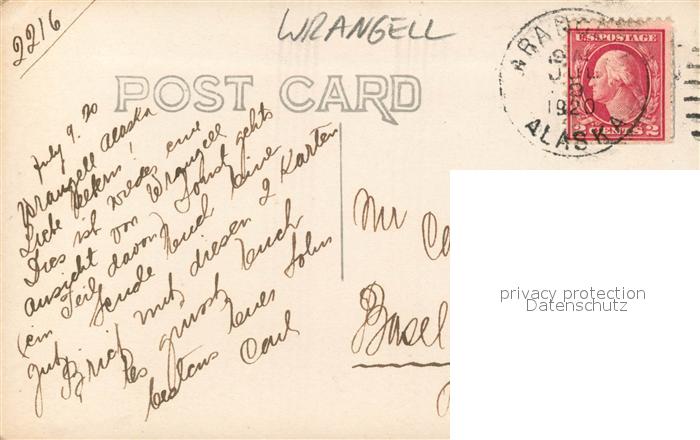 2216
WRANGELL
WRANGELL
JUL
9
1920
ALASKA
U.S. POSTAGE
2 CENTS 2
POST CARD
July 9. 20
Wrangell Alaska
Liebe Eltern!
Dies ist wieder eine
ansicht von Wrangell
(ein Teil davon) Sonst gehts
gut. Sende Euch eine
Brief mit diesen 2 Karten
Es grüsst Euch
bestens Euer Sohn
Carl
Mr Ca
Basel
privacy protection
Datenschutz